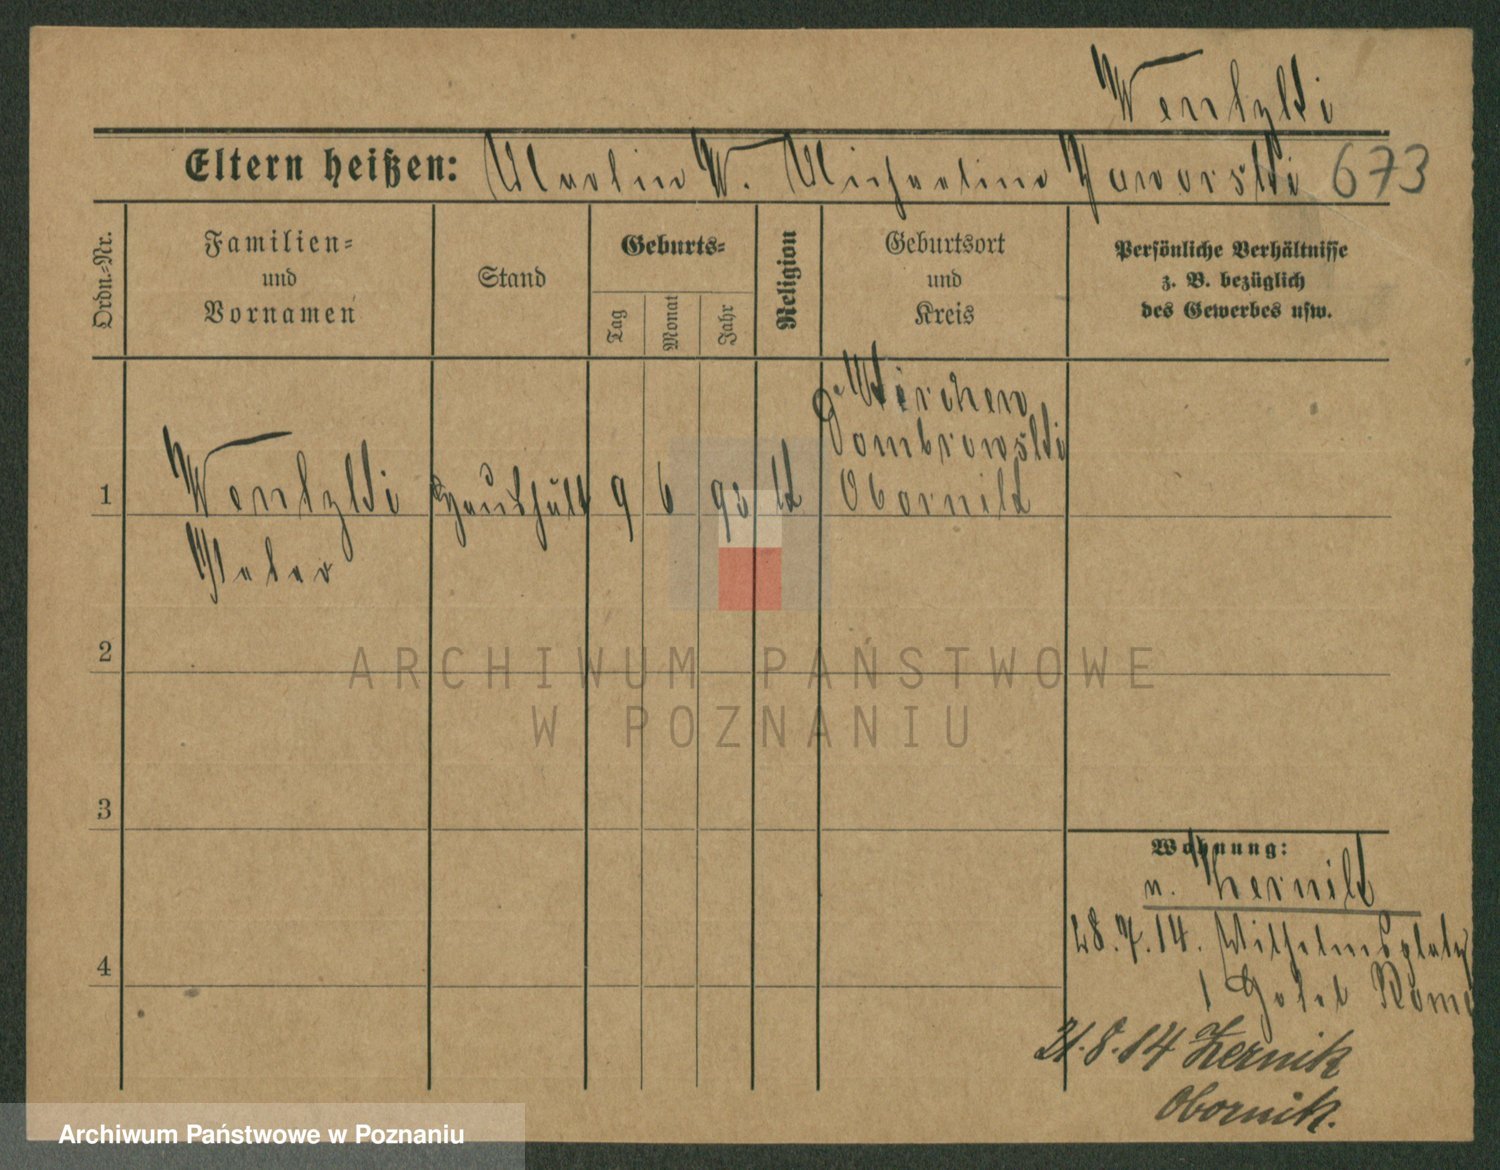 Wentzki
Eltern heißen: Martin W. Michaelina Jaworski 673
Ordn.=Nr.
Familien=
und
Vornamen
Stand
Geburts=
Tag
Monat
Jahr
Religion
Geburtsort
und
Kreis
Persönliche Verhältnisse
z. B. bezüglich
des Gewerbes usw.
Dombrowski
1 Wentzki 9 6 93 k Obornik
Peter
2
3
4
Wohnung:
n. Zernik
28.7.14. Wilhelmsplatz
1 Hotel Rome
31.8.14 Zernik
Obornik.
ARCHIWUM PAŃSTWOWE
W POZNANIU
Archiwum Państwowe w Poznaniu